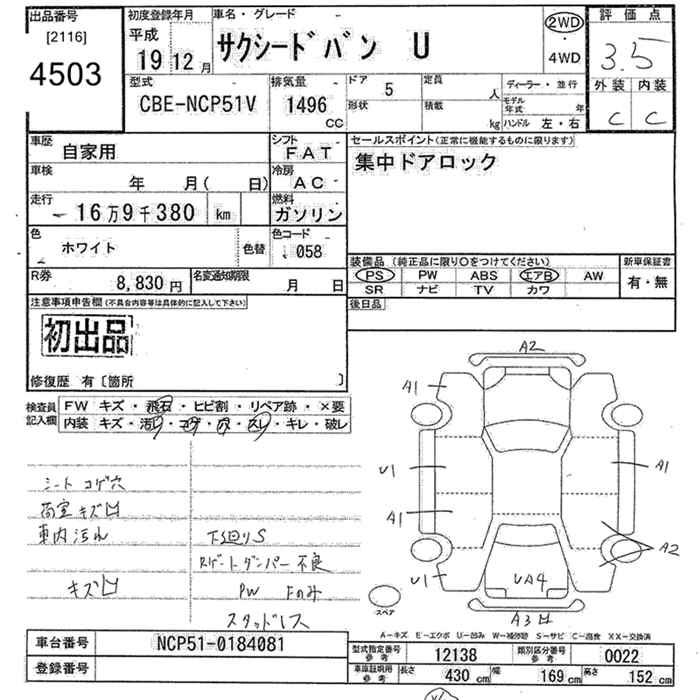 出品番号
[2116]
4503
初度登録年月
平成
19 12月
車名・グレード
サクシードバン U
2WD
・
4WD
評価点
3.5
外装 内装
C C
型式
CBE-NCP51V
排気量
1496
CC
ドア
5
形状
定員
人
積載
kg
ディーラー・並行
モデル年式 年
ハンドル 左・右
車歴
自家用
シフト
FAT
車検
年 月( 日)
冷房
AC
走行
16万9千380 km
燃料
ガソリン
色
ホワイト
色替
色コード
058
R券
8,830円
名変通知期限
月 日
セールスポイント(正常に機能するものに限ります)
集中ドアロック
装備品 (純正品に限り○をつけてください)
PS PW ABS エアB AW
SR ナビ TV カワ
新車保証書
有・無
後日品
注意事項申告欄(不具合内容等は具体的に記入して下さい)
初出品
修復歴 有〔箇所 〕
検査員記入欄
FW キズ・飛石・ヒビ割・リペア跡・×要
内装 キズ・汚レ・コゲ・穴・スレ・キレ・破レ
シート コゲ穴
荷室 キズ凹
車内汚れ
キズ凹
下廻りS
Rゲートダンパー不良
PW Fのみ
スタッドレス
A2
A1
U1
A1
A1
A2
U1
UA4
A3凹
スペア
A-キズ E-エクボ U-凹み W-補修跡 S-サビ C-腐食 XX-交換済
車台番号 NCP51-0184081
登録番号
型式指定番号 参考 12138
類別区分番号 参考 0022
車庫証明用 参考 長さ 430 cm 幅 169 cm 高さ 152 cm